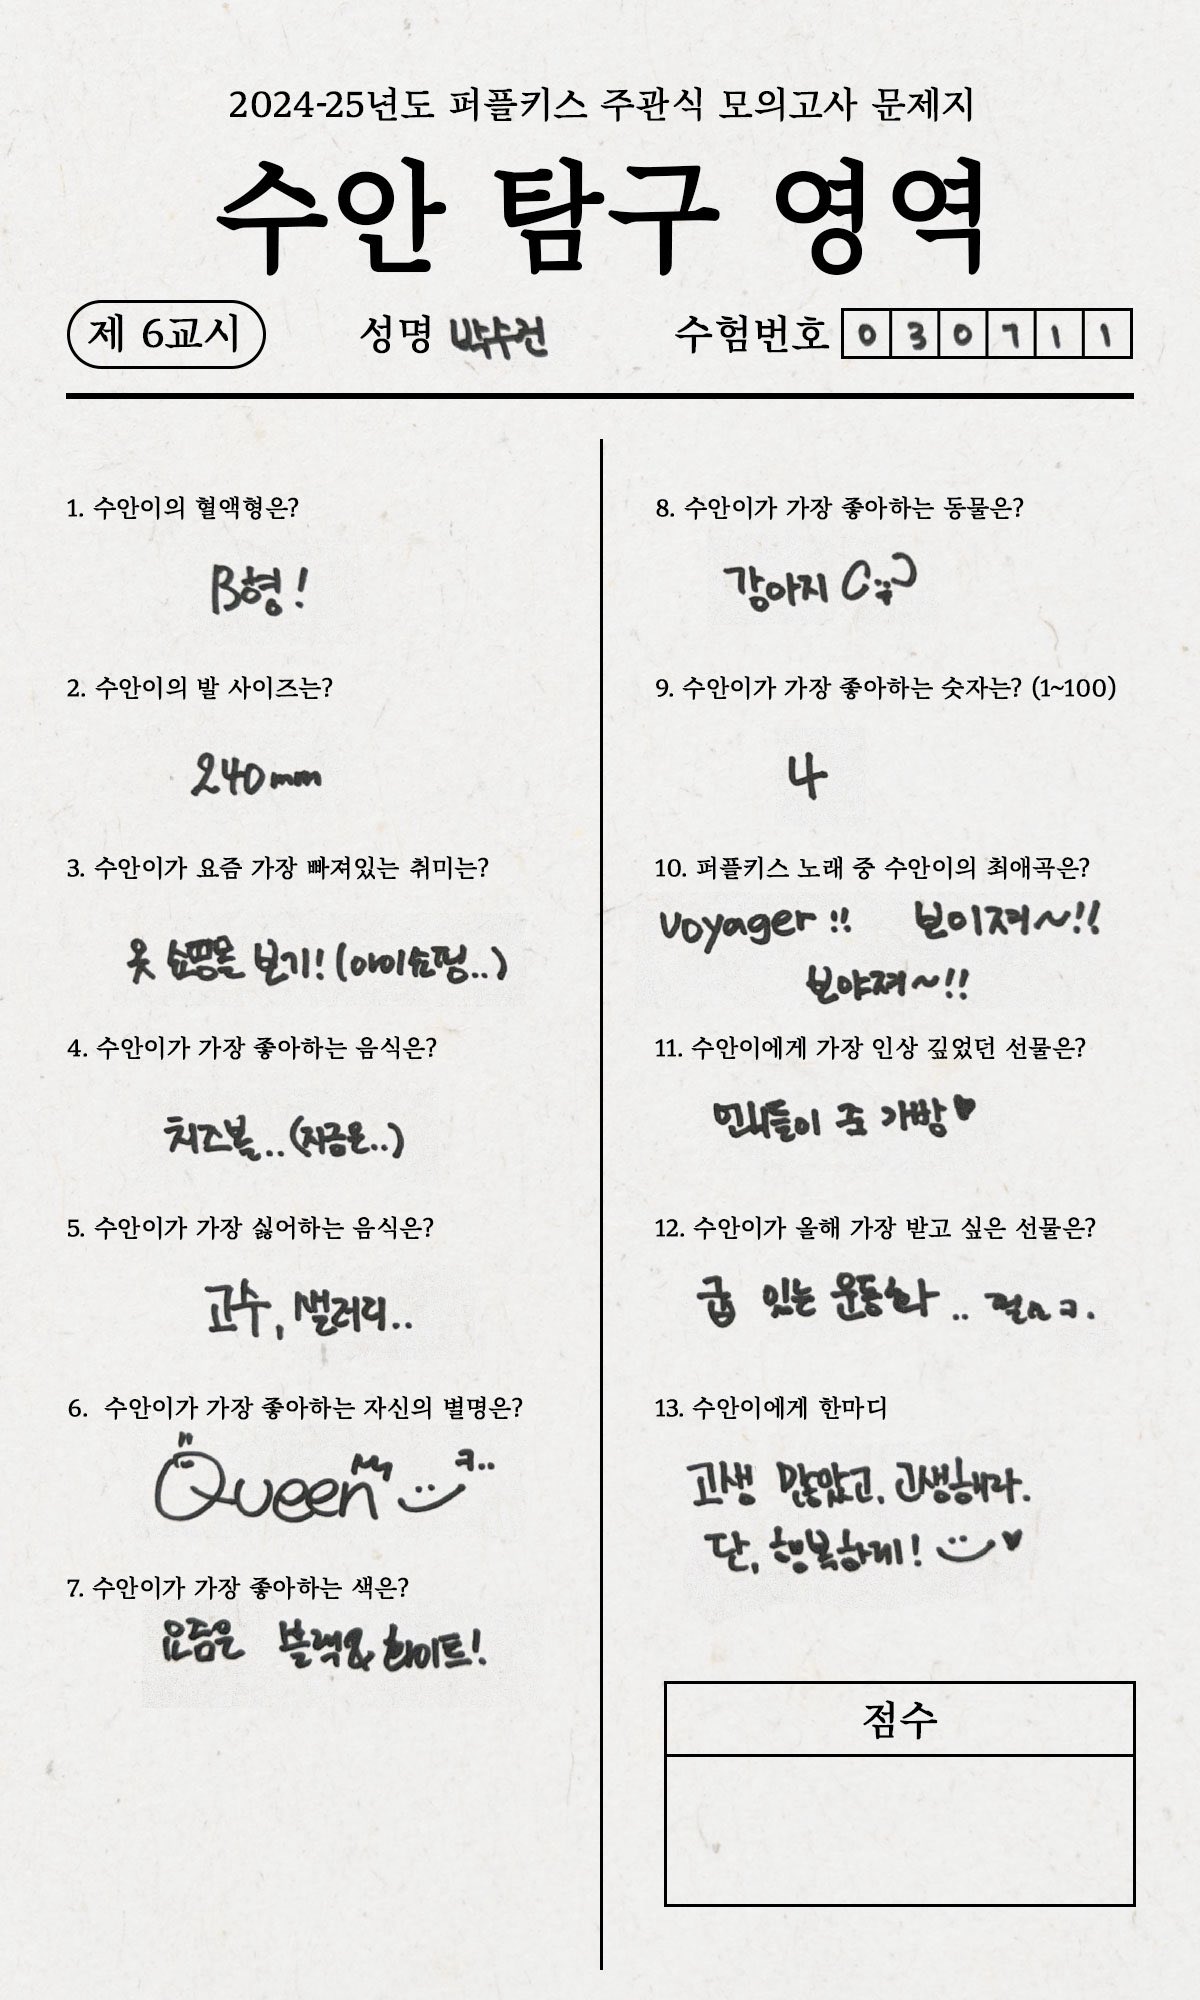 2024-25년도 퍼플키스 주관식 모의고사 문제지
수안 탐구 영역
제 6교시
성명 박수건
수험번호 0 3 0 7 1 1
1. 수안이의 혈액형은?
B형!
2. 수안이의 발 사이즈는?
240mm
3. 수안이가 요즘 가장 빠져있는 취미는?
옷 쇼핑몰 보기! (아이쇼핑..)
4. 수안이가 가장 좋아하는 음식은?
치즈볼.. (지금은..)
5. 수안이가 가장 싫어하는 음식은?
고수, 샐러리..
6. 수안이가 가장 좋아하는 자신의 별명은?
Queen
7. 수안이가 가장 좋아하는 색은?
요즘은 블랙&화이트!
8. 수안이가 가장 좋아하는 동물은?
강아지
9. 수안이가 가장 좋아하는 숫자는? (1~100)
4
10. 퍼플키스 노래 중 수안이의 최애곡은?
Voyager !! 보이져~!!
보야져~!!
11. 수안이에게 가장 인상 깊었던 선물은?
언니들이 준 가방♥
12. 수안이가 올해 가장 받고 싶은 선물은?
굽 있는 운동화..
13. 수안이에게 한마디
고생 많았고, 고생해라.
단, 행복하게! ♥
점수